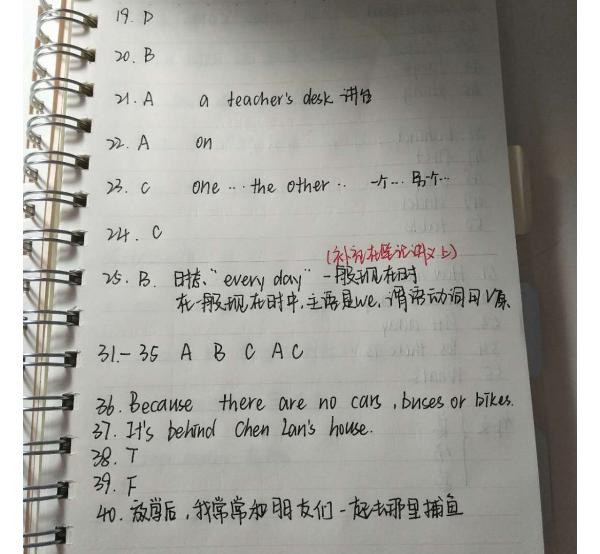 19. D
20. B
21. A a teacher's desk 讲台
22. A on
23. C one … the other … 一个… 另一个…
24. C
(补充在笔记讲义上)
25. B. 时态 "every day" 一般现在时
在一般现在时中,主语是we,谓语动词用V原
31.-35 A B C A C
36. Because there are no cars , buses or bikes.
37. It's behind Chen Lan's house.
38. T
39. F
40. 放学后,我常常和朋友们一起去那里捕鱼